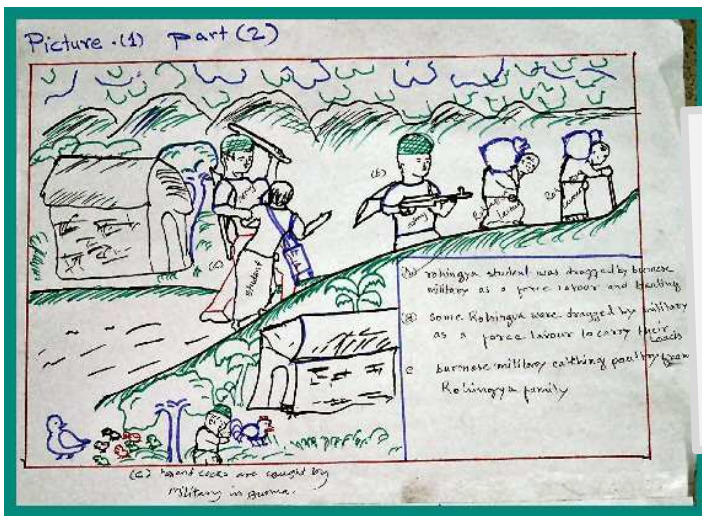 Picture.(1) Part (2)
(b)
army
army
student
(b) rohingya student was dragged by burmese
military as a force lavour and beating
(a) some Rohingya were dragged by military
as a force lavour to carry their
Loads
c burmese military catching poultry from
Rohingya family
(c) and cocks are caught by
military in Burma.